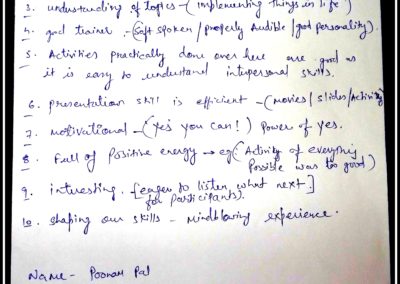 3. understanding of topics - (implementing things in life)
4. god trainer - (soft spoken / properly Audible / god personality).
5. Activities practically done over here are good as
it is easy to understand interpersonal skills.
6. presentation skill is efficient - (movies / slides / activity)
7. motivational - (yes you can!) Power of yes.
8. Full of Positive energy → eg (Activity of everything
Possible was too good)
9. interesting. [eager to listen, what next]
for participants).
10. shaping our skills - Mindblowing experience.
Name - Poonam Pal